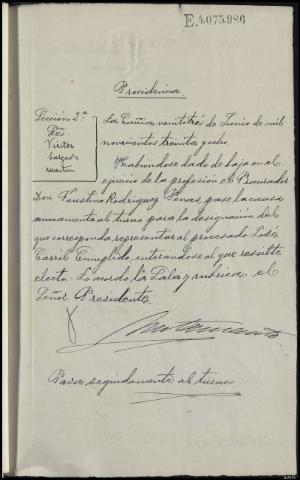 E.4.075.986
Providencia.
Sección 2ª
Sres.
Victor
Salgado
Martin
La Coruña veintitrés de Junio de mil
novecientos treinta y ocho.
Habiéndose dado de baja en el
ejercicio de la profesión el Procurador
Don Faustino Rodriguez Penas, pase la causa
nuevamente al turno para la designación del
que corresponda representar al procesado José
Carril Cumplido, enterándose al que resulte
electo. Lo acordó la Sala y rubrica el
Señor Presidente.
Pasa seguidamente al turno